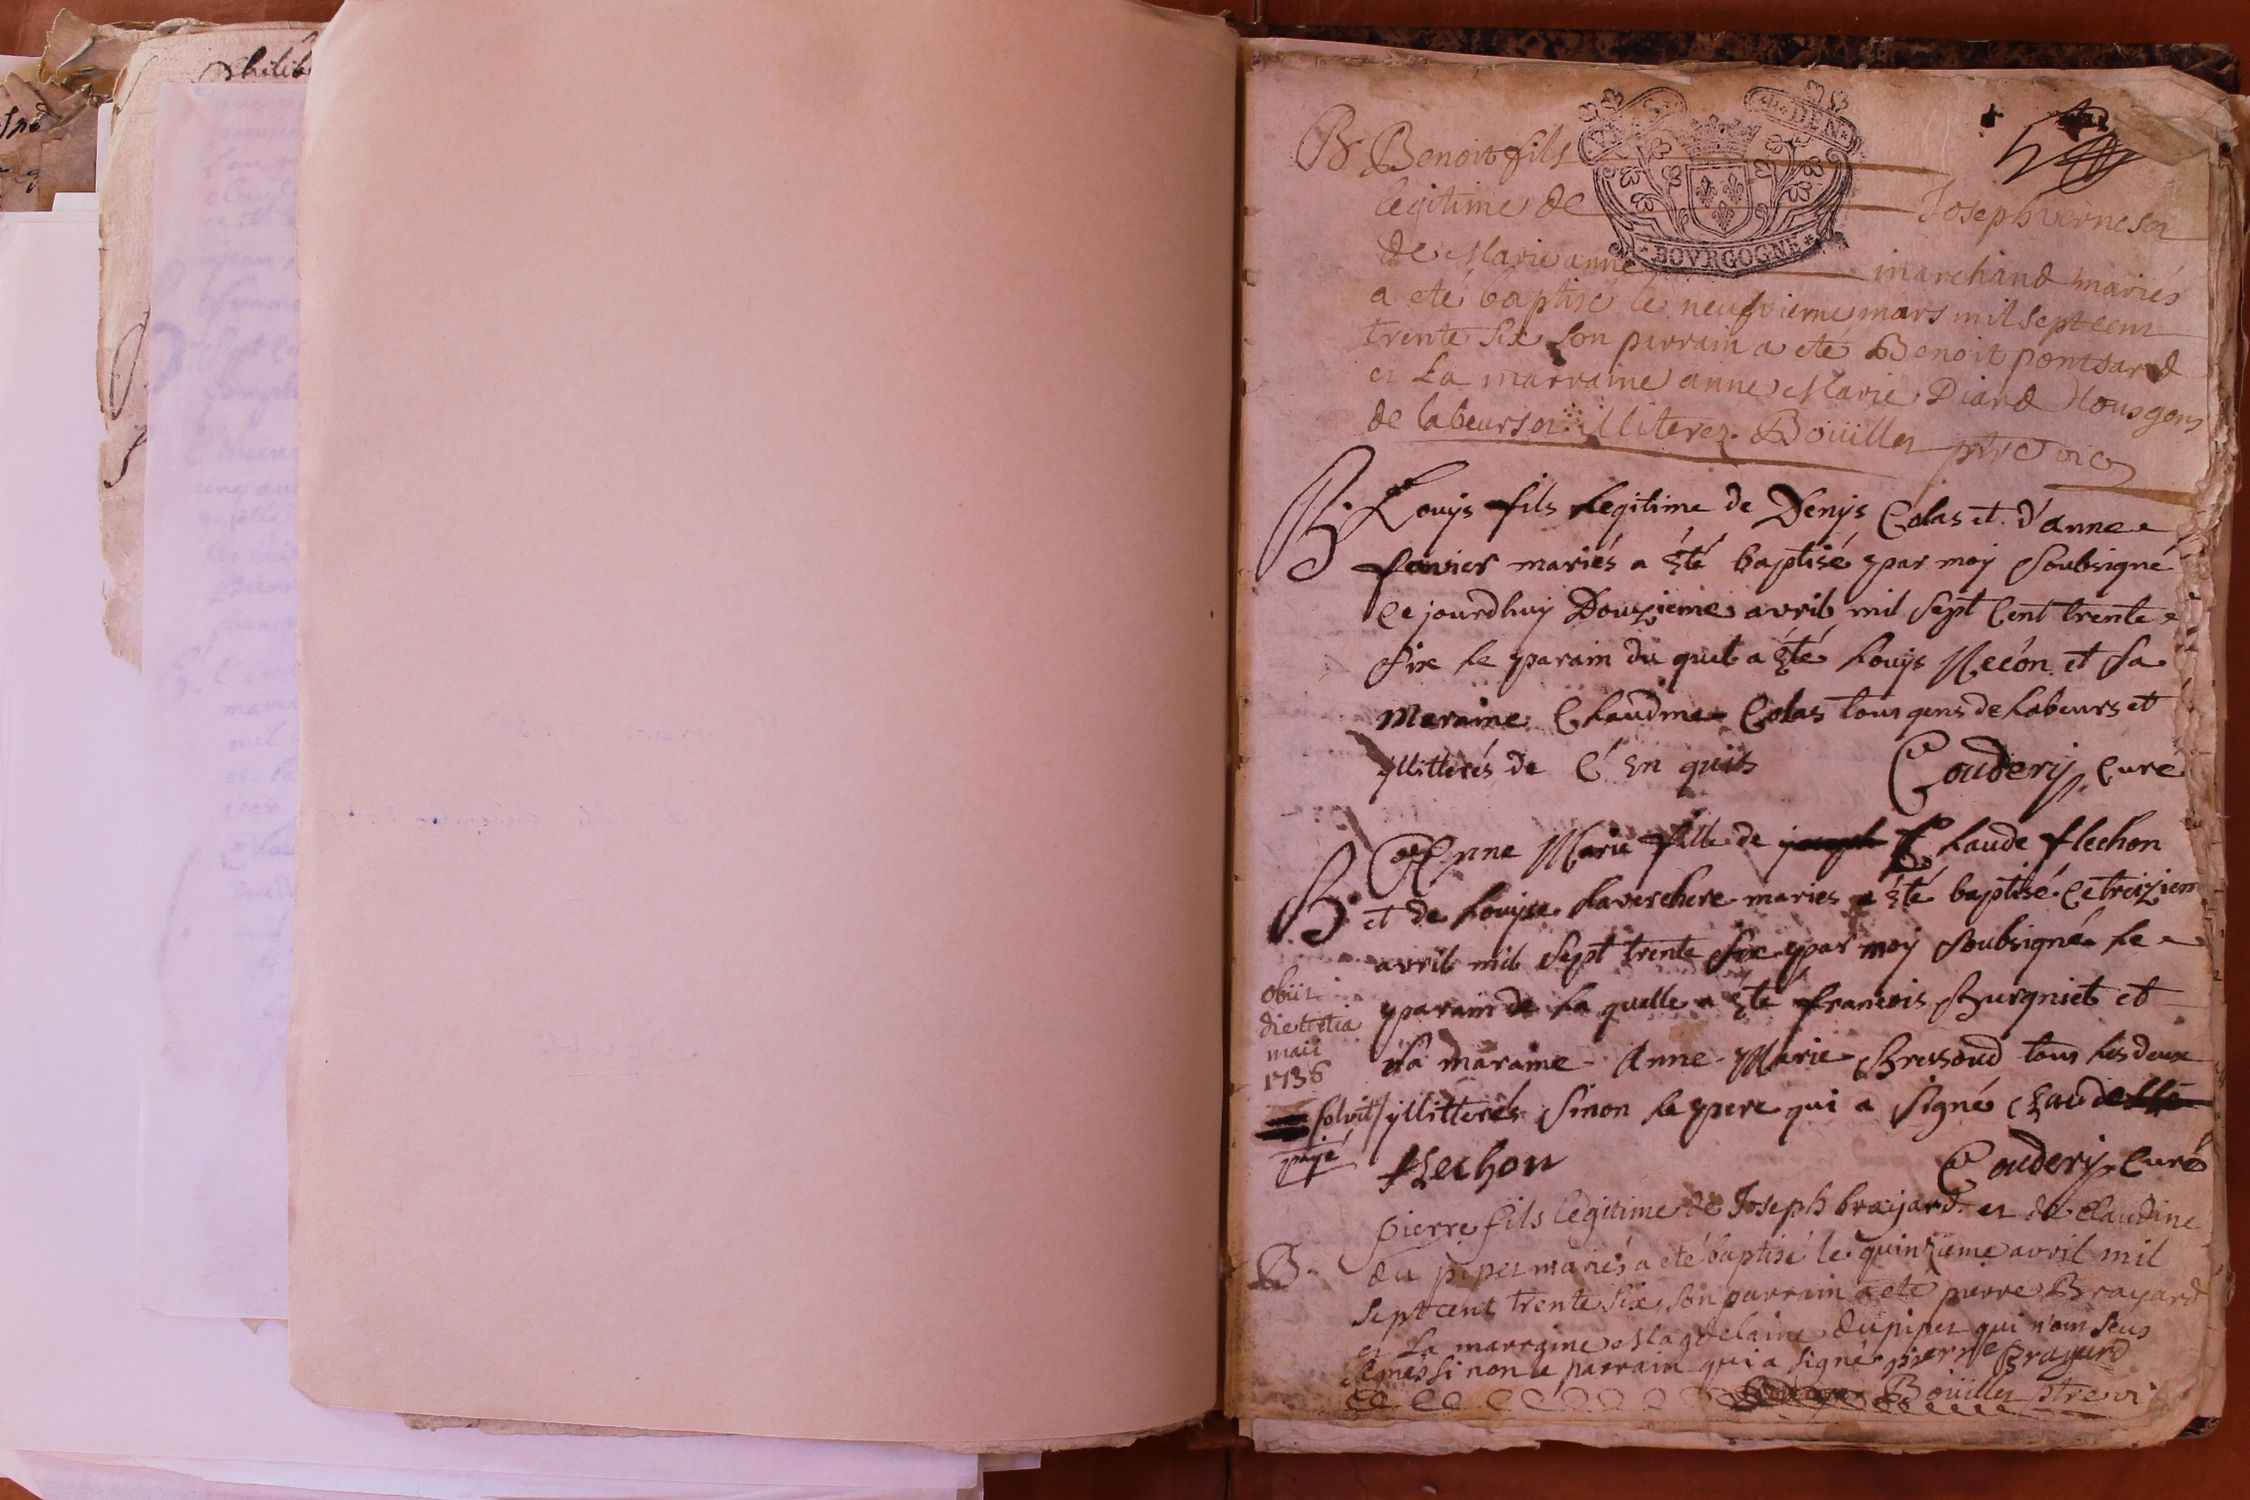 B Benoit fils
legitime de Joseph verne et
de Marie anne marchand mariés
a eté baptisé le neufvieme mars mil sept cent
trente six son parrain a eté Benoit pontsard
et La marraine anne Marie Diard tous gens
de labeurs et illiterez. Boüillet ptre vic
DEN
BOVRGOGNE
B. Louys fils Legitime de Denys Colas et d'anne
mariés a été baptisé par moy Soubsigné
Ce jourdhuy Douzieme avril mil sept Cent trente
Six Le parain du quel a été Louys et Sa
Maraine Claudine Colas tous gens de Labeurs et
yllitterés de Enquis Couderij Curé
B. Anne Marie fille de Claude flechon
et de Louyse Laverchere maries a été baptisé Ce treiziem
avril mil Sept trente Six par moy Soubsigné Le
parain de La quelle a été francois Burgniet et
La maraine Anne Marie Bressoud tous Les deux
yllitterés Sinon Le pere qui a Signé Claude
flechon Couderij Curé
obiit
die tertia
maii
1736
solvit
payé
B. pierre fils legitime de Joseph brayard et de claudine
du piper mariés a eté baptisé le quinzieme avril mil
sept cent trente six, son parrain a eté pierre Brayard
et La marraine Magdelaine dupiper qui n'ont sceu
signer si non le parrain qui a signé pierre Brayard
Boüillet ptre vi